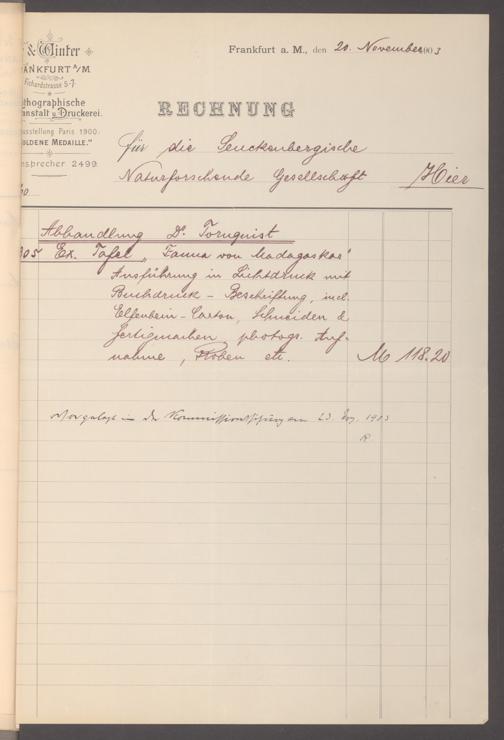 & Winter
ANKFURT A/M.
Fichardstrasse 5-7.
thographische
anstalt u. Druckerei.
usstellung Paris 1900:
OLDENE MEDAILLE."
nsprecher 2499.
Frankfurt a. M., den 20. November 1903
RECHNUNG
für die Senckenbergische
Naturforschende Gesellschaft Hier
Abhandlung Dr. Tornquist
305 Ex. Tafel „Fauna von Madagaskar"
Ausführung in Lichtdruck mit
Buchdruck - Beschriftung, incl.
Elfenbein-Carton, Schneiden &
fertigmachen, photogr. Auf-
nahme, Proben etc. M 118.20
Vorgelegt in der Kommissionssitzung am 23. 1903